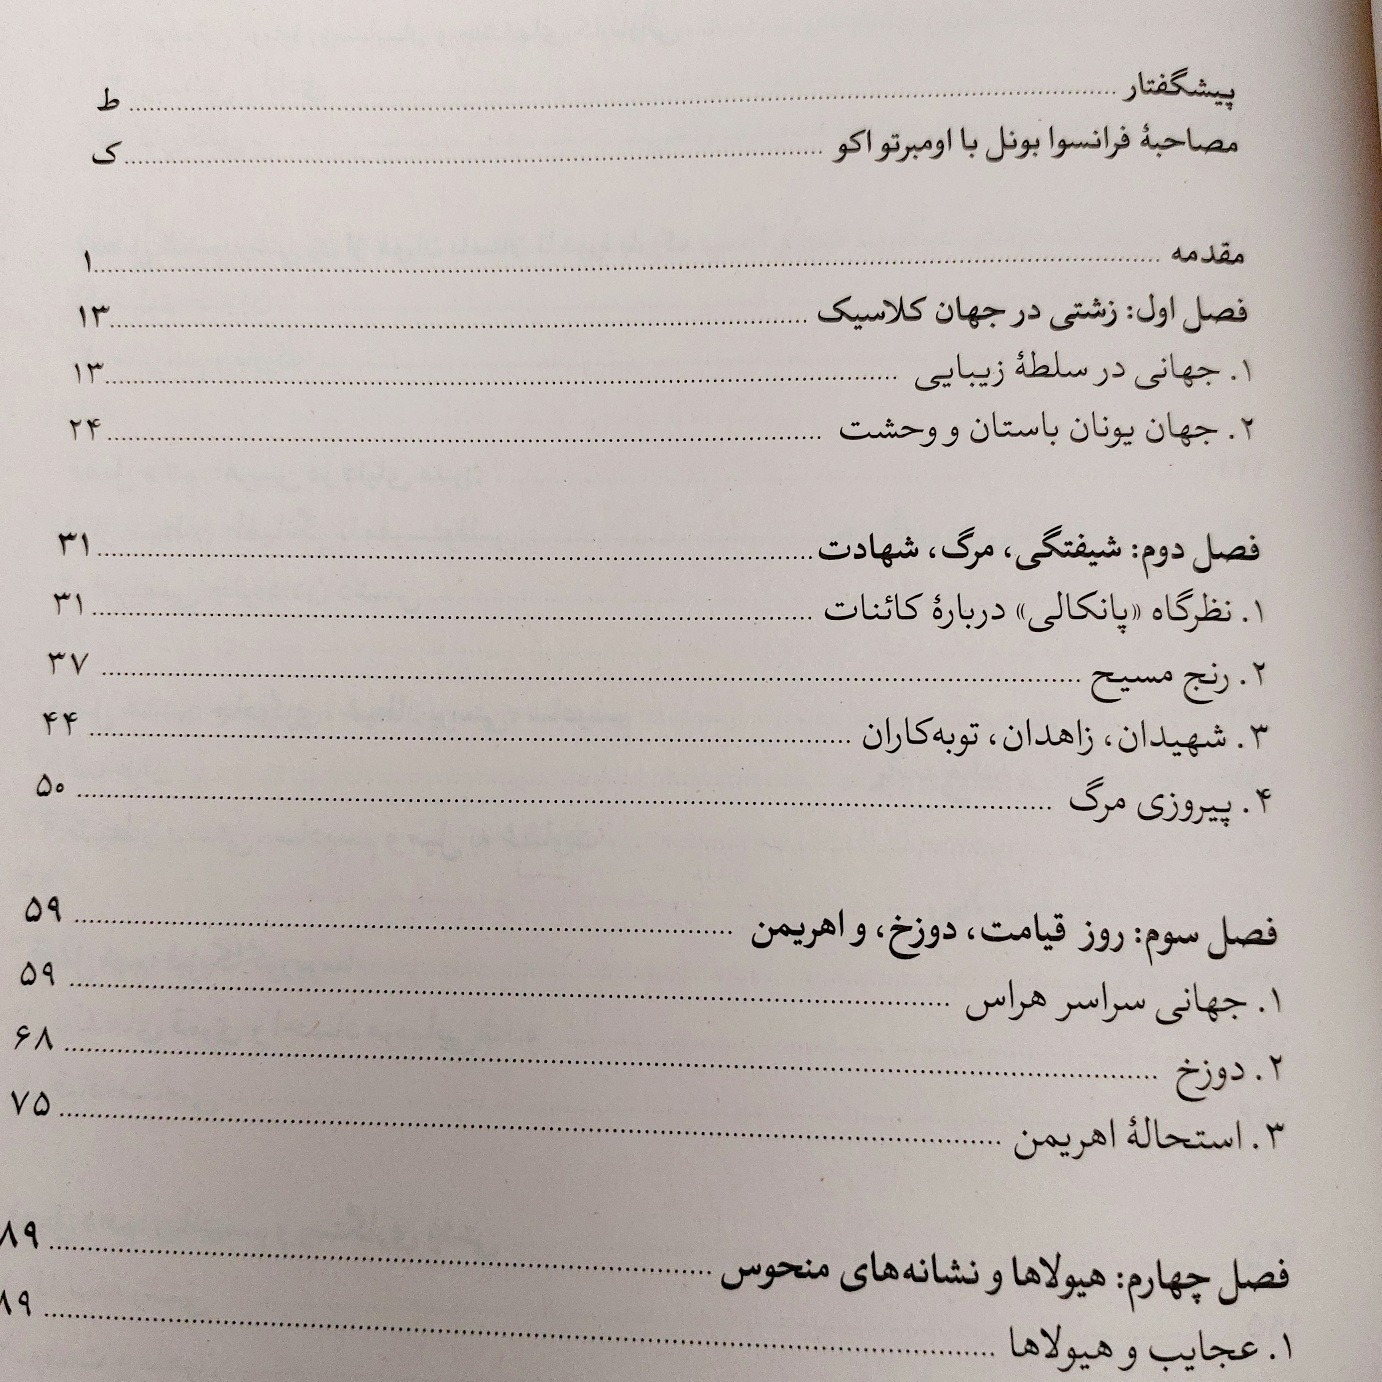 پیشگفتار ........ ط
مصاحبهٔ فرانسوا بونل با اومبرتو اکو ........ ک
مقدمه ........ ۱
فصل اول: زشتی در جهان کلاسیک ........ ۱۳
۱. جهانی در سلطهٔ زیبایی ........ ۱۳
۲. جهان یونان باستان و وحشت ........ ۲۴
فصل دوم: شیفتگی، مرگ، شهادت ........ ۳۱
۱. نظرگاه «پانکالی» دربارهٔ کائنات ........ ۳۱
۲. رنج مسیح ........ ۳۷
۳. شهیدان، زاهدان، توبه‌کاران ........ ۴۴
۴. پیروزی مرگ ........ ۵۰
فصل سوم: روز قیامت، دوزخ، و اهریمن ........ ۵۹
۱. جهانی سراسر هراس ........ ۵۹
۲. دوزخ ........ ۶۸
۳. استحالهٔ اهریمن ........ ۷۵
فصل چهارم: هیولاها و نشانه‌های منحوس ........ ۸۹
۱. عجایب و هیولاها ........ ۸۹